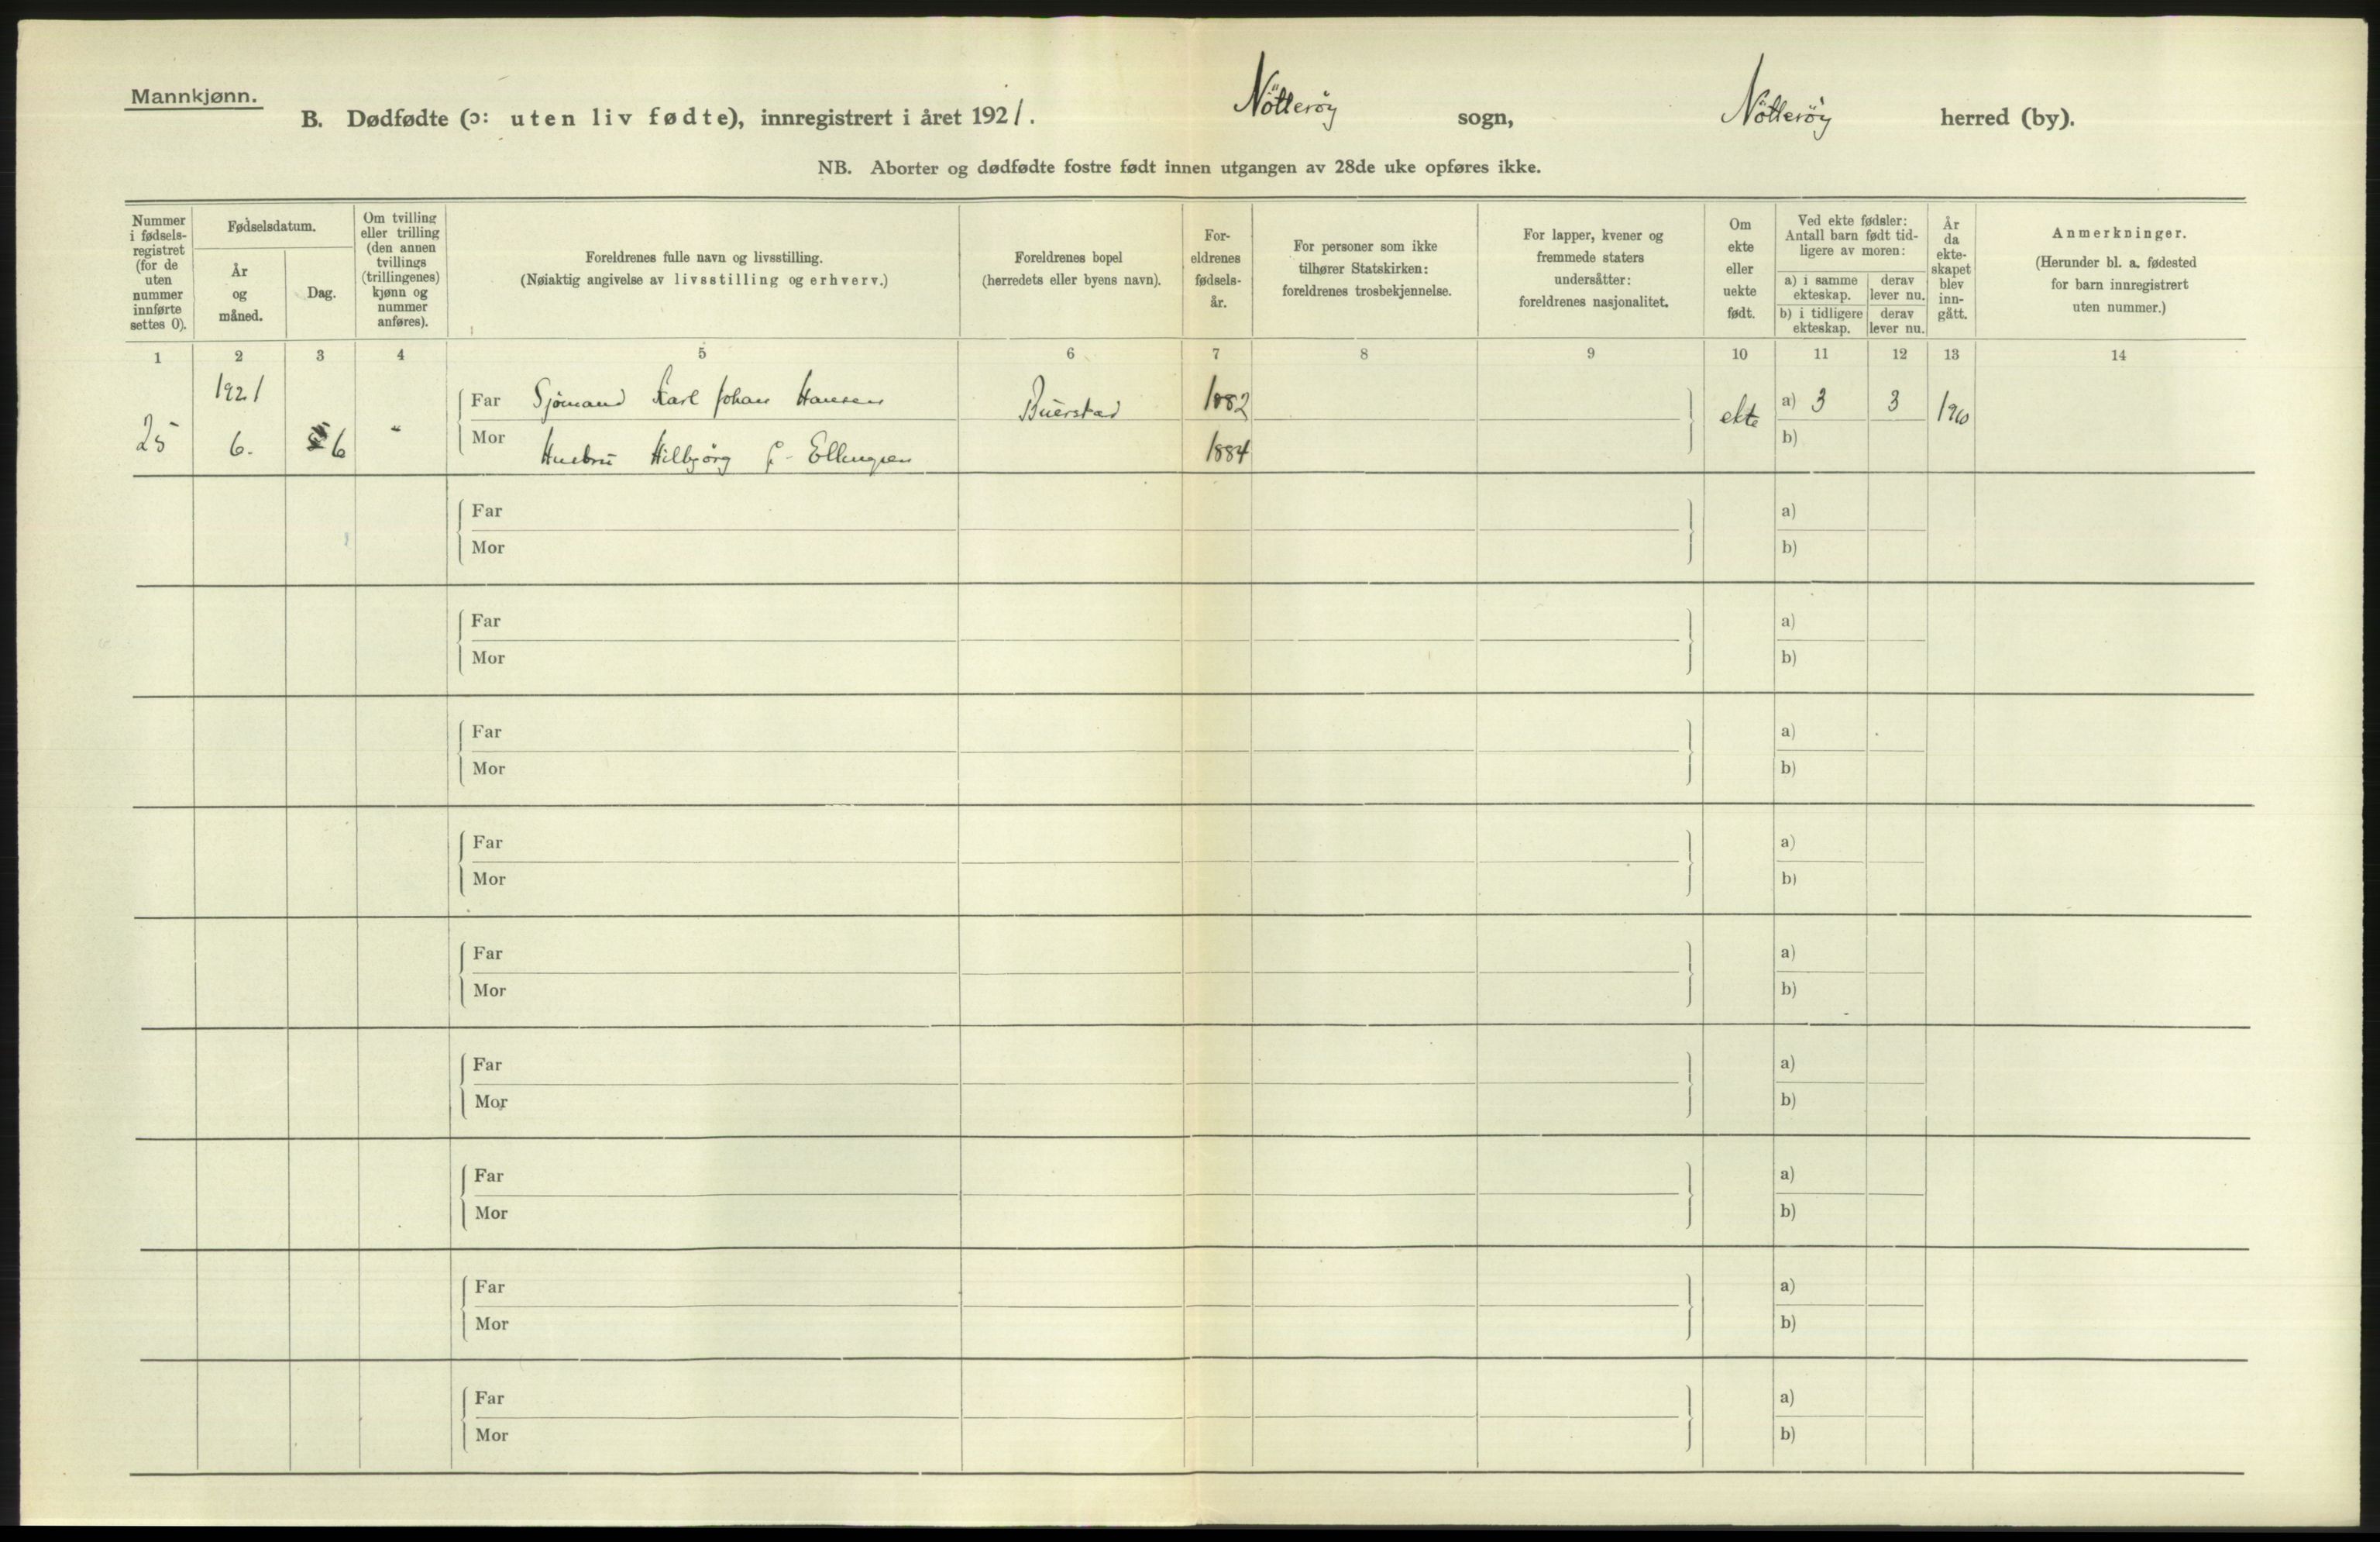 Mannkjønn.
B. Dødfødte (ɔ: uten liv fødte), innregistrert i året 1921. Nötterøy sogn, Nötterøy herred (by).
NB. Aborter og dødfødte fostre født innen utgangen av 28de uke opføres ikke.
Nummer i fødsels-registret (for de uten nummer innførte settes 0).
Fødselsdatum.
År og måned.
Dag.
Om tvilling eller trilling (den annen tvillings (trillingenes) kjønn og nummer anføres).
Foreldrenes fulle navn og livsstilling.
(Nøiaktig angivelse av livsstilling og erhverv.)
Foreldrenes bopel
(herredets eller byens navn).
For-eldrenes fødsels-år.
For personer som ikke tilhører Statskirken: foreldrenes trosbekjennelse.
For lapper, kvener og fremmede staters undersåtter: foreldrenes nasjonalitet.
Om ekte eller uekte født.
Ved ekte fødsler: Antall barn født tid-ligere av moren:
a) i samme ekteskap.
derav lever nu.
b) i tidligere ekteskap.
derav lever nu.
År da ekte-skapet blev inn-gått.
Anmerkninger.
(Herunder bl. a. fødested for barn innregistrert uten nummer.)
1 2 3 4 5 6 7 8 9 10 11 12 13 14
1921
Far Sjömand Karl Johan Hansen Buerstad 1882 ekte a) 3 3
25 6. 6 "
Mor Hustru Hilbjörg f- Ellingsen 1884 b)
Far a)
Mor b)
Far a)
Mor b)
Far a)
Mor b)
Far a)
Mor b)
Far a)
Mor b)
Far a)
Mor b)
Far a)
Mor b)
Far a)
Mor b)
Far a)
Mor b)